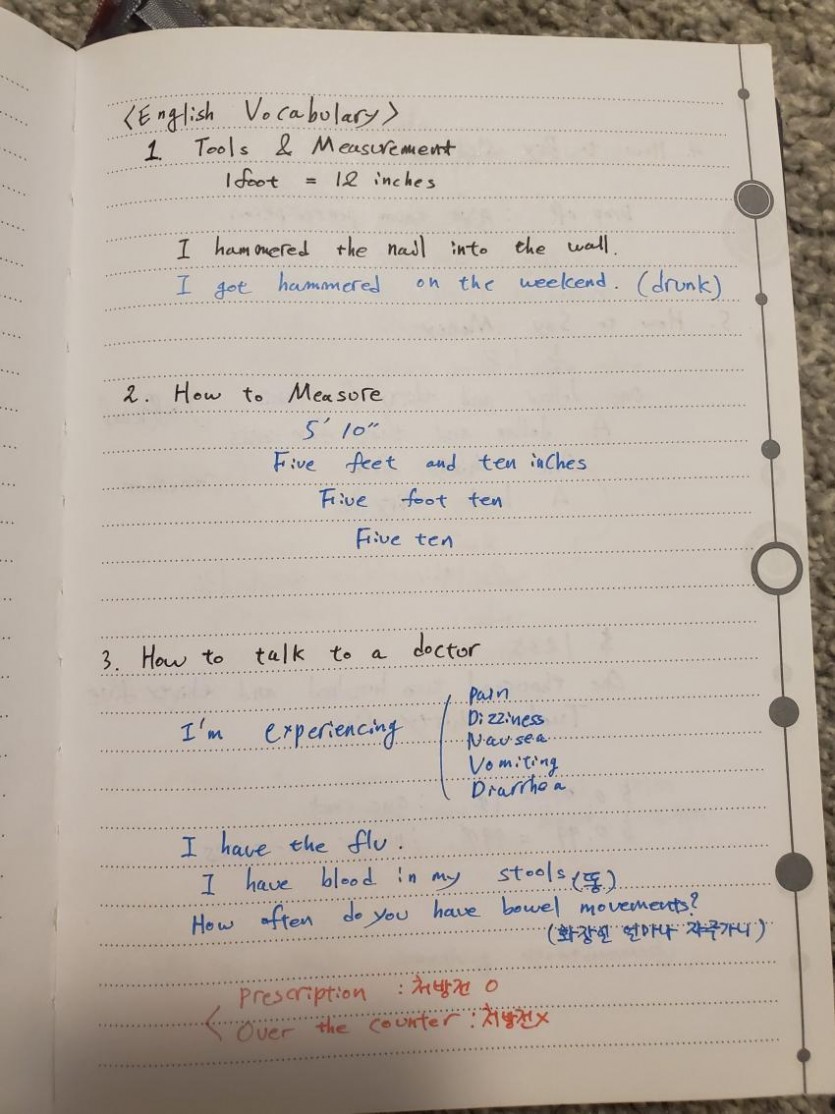 <English Vocabulary>
1. Tools & Measurement
1 foot = 12 inches
I hammered the nail into the wall.
I got hammered on the weekend. (drunk)
2. How to Measure
5' 10"
Five feet and ten inches
Five foot ten
Five ten
3. How to talk to a doctor
I'm experiencing
Pain
Dizziness
Nausea
Vomiting
Diarrhea
I have the flu.
I have blood in my stools (똥)
How often do you have bowel movements?
(화장실 얼마나 자주가니)
Prescription : 처방전 O
Over the counter : 처방전 X